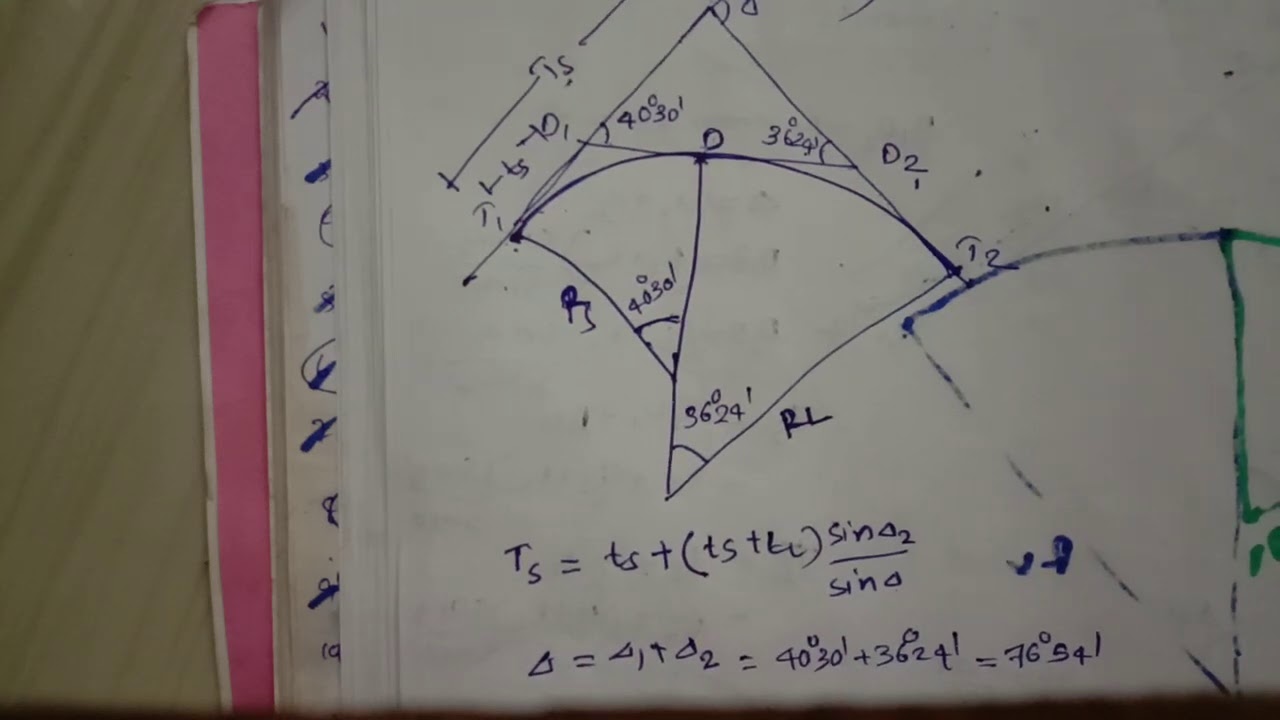 Δ
Ts
40°30'
D1
D
36°24'
D2
ts
T1
T2
Rs
40°30'
36°24'
RL
Ts = ts + (ts + tL) sinΔ2 / sinΔ
Δ = Δ1 + Δ2 = 40°30' + 36°24' = 76°54'